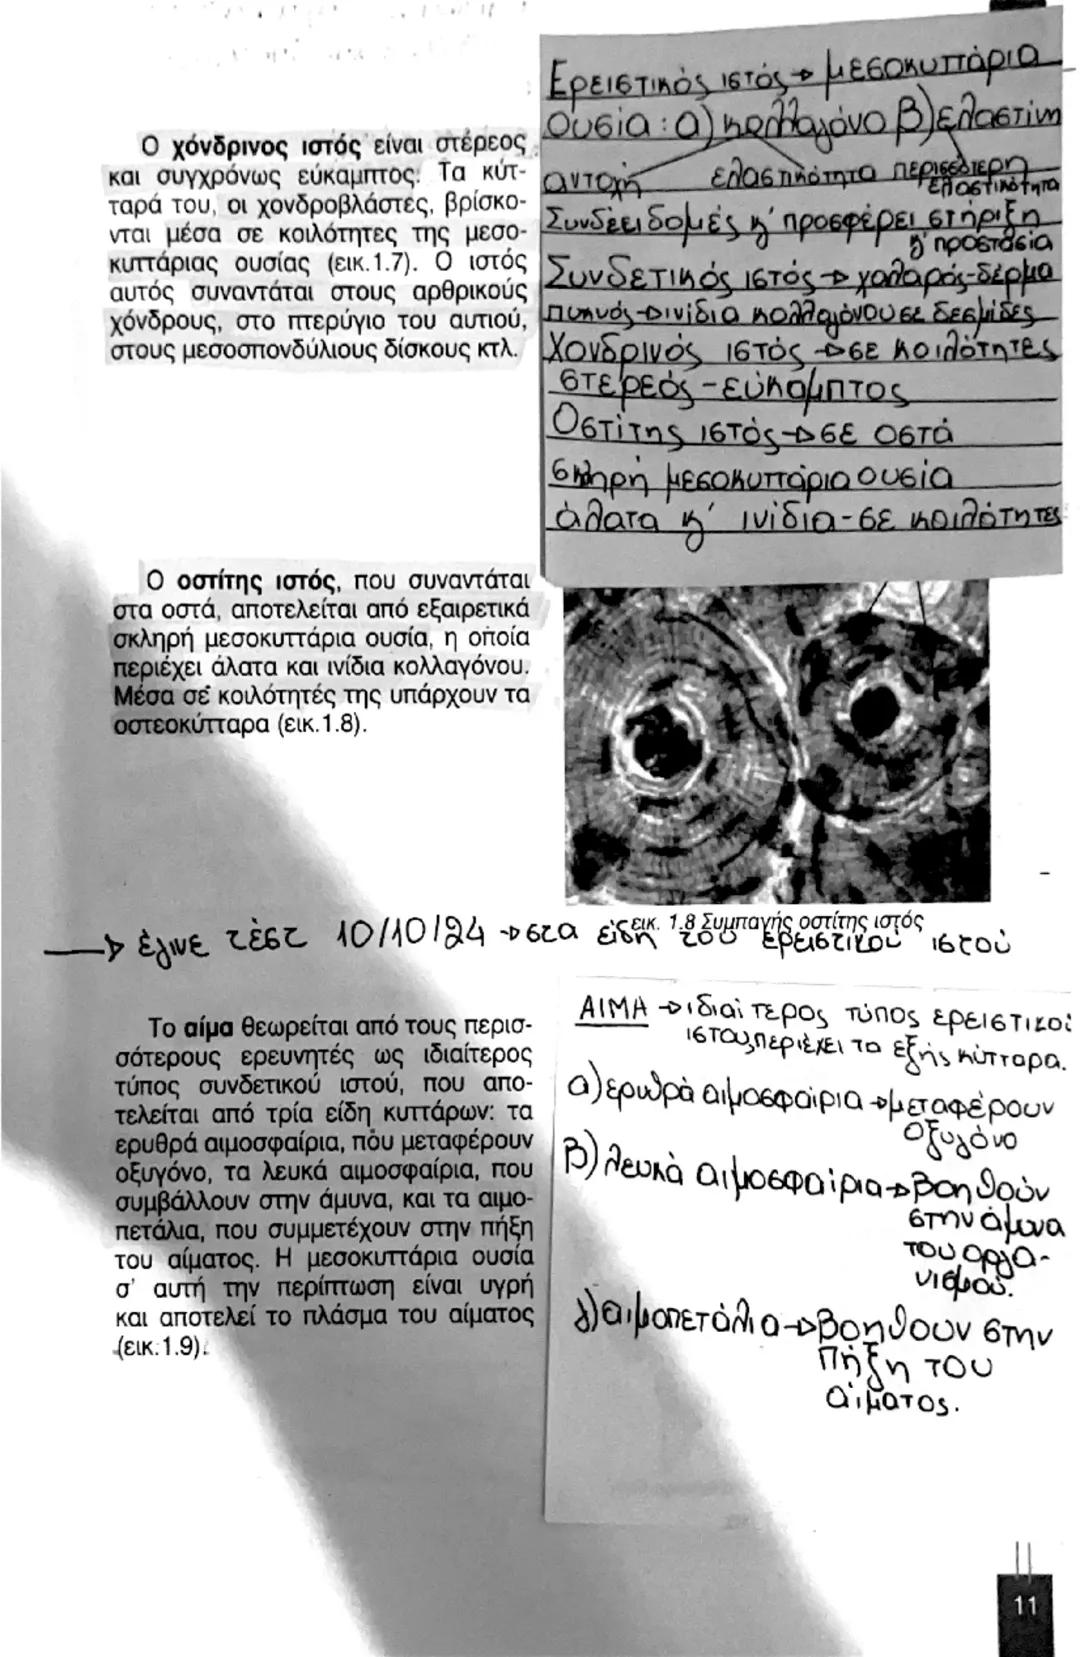 Ερειστικός ιστός→μεσοκυττάρια
ουσία: α) κολλαγόνο β) ελαστίνη
αντοχή ελαστικότητα περισσότερη
ελαστικότητα
Συνδέει δομές κ' προσφέρει στήριξη
κ' προστασία
Συνδετικός ιστός→χαλαρός-δέρμα
πυκνός→ινίδια κολλαγόνου σε δεσμίδες
Χονδρινός ιστός→σε κοιλότητες
στερεός-εύκαμπτος
Οστίτης ιστός→σε οστά
σκληρή μεσοκυττάρια ουσία
άλατα κ' ινίδια-σε κοιλότητες
Ο χόνδρινος ιστός είναι στέρεος
και συγχρόνως εύκαμπτος. Τα κύτ-
ταρά του, οι χονδροβλάστες, βρίσκο-
νται μέσα σε κοιλότητες της μεσο-
κυττάριας ουσίας (εικ.1.7). Ο ιστός
αυτός συναντάται στους αρθρικούς
χόνδρους, στο πτερύγιο του αυτιού,
στους μεσοσπονδύλιους δίσκους κτλ.
Ο οστίτης ιστός, που συναντάται
στα οστά, αποτελείται από εξαιρετικά
σκληρή μεσοκυττάρια ουσία, η οποία
περιέχει άλατα και ινίδια κολλαγόνου.
Μέσα σε κοιλότητές της υπάρχουν τα
οστεοκύτταρα (εικ.1.8).
εικ. 1.8 Συμπαγής οστίτης ιστός
→ έγινε τέστ 10/10/24→στα είδη του ερειστικού ιστού
Το αίμα θεωρείται από τους περισ-
σότερους ερευνητές ως ιδιαίτερος
τύπος συνδετικού ιστού, που απο-
τελείται από τρία είδη κυττάρων: τα
ερυθρά αιμοσφαίρια, που μεταφέρουν
οξυγόνο, τα λευκά αιμοσφαίρια, που
συμβάλλουν στην άμυνα, και τα αιμο-
πετάλια, που συμμετέχουν στην πήξη
του αίματος. Η μεσοκυττάρια ουσία
σ' αυτή την περίπτωση είναι υγρή
και αποτελεί το πλάσμα του αίματος
(εικ.1.9).
ΑΙΜΑ→ιδιαίτερος τύπος ερειστικού
ιστού, περιέχει τα εξής κύτταρα.
α) ερυθρά αιμοσφαίρια→μεταφέρουν
οξυγόνο
β) λευκά αιμοσφαίρια→βοηθούν
στην άμυνα
του οργα-
νισμού.
γ) αιμοπετάλια→βοηθούν στην
πήξη του
αίματος.
11